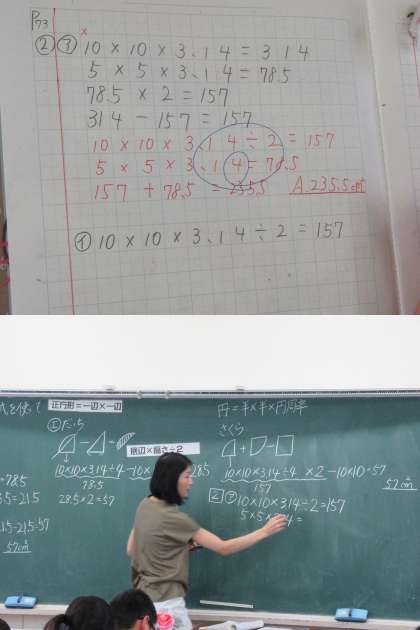 P73
② ㋒ 10×10×3.14=314
5×5×3.14=78.5
78.5×2=157
314-157=157
10×10×3.14÷2=157
5×5×3.14=78.5
157+78.5=235.5 A.235.5cm²
㋑ 10×10×3.14÷2=157
式を使って
正方形=一辺×一辺
円=半×半×円周率
さくら
底辺×高さ÷2
10×10×3.14÷4
78.5
28.5×2=57
28.5
10×10×3.14÷4×2-10×10=57
157
57cm²
2 ㋐ 10×10×3.14÷2=157
=78.5
57cm²